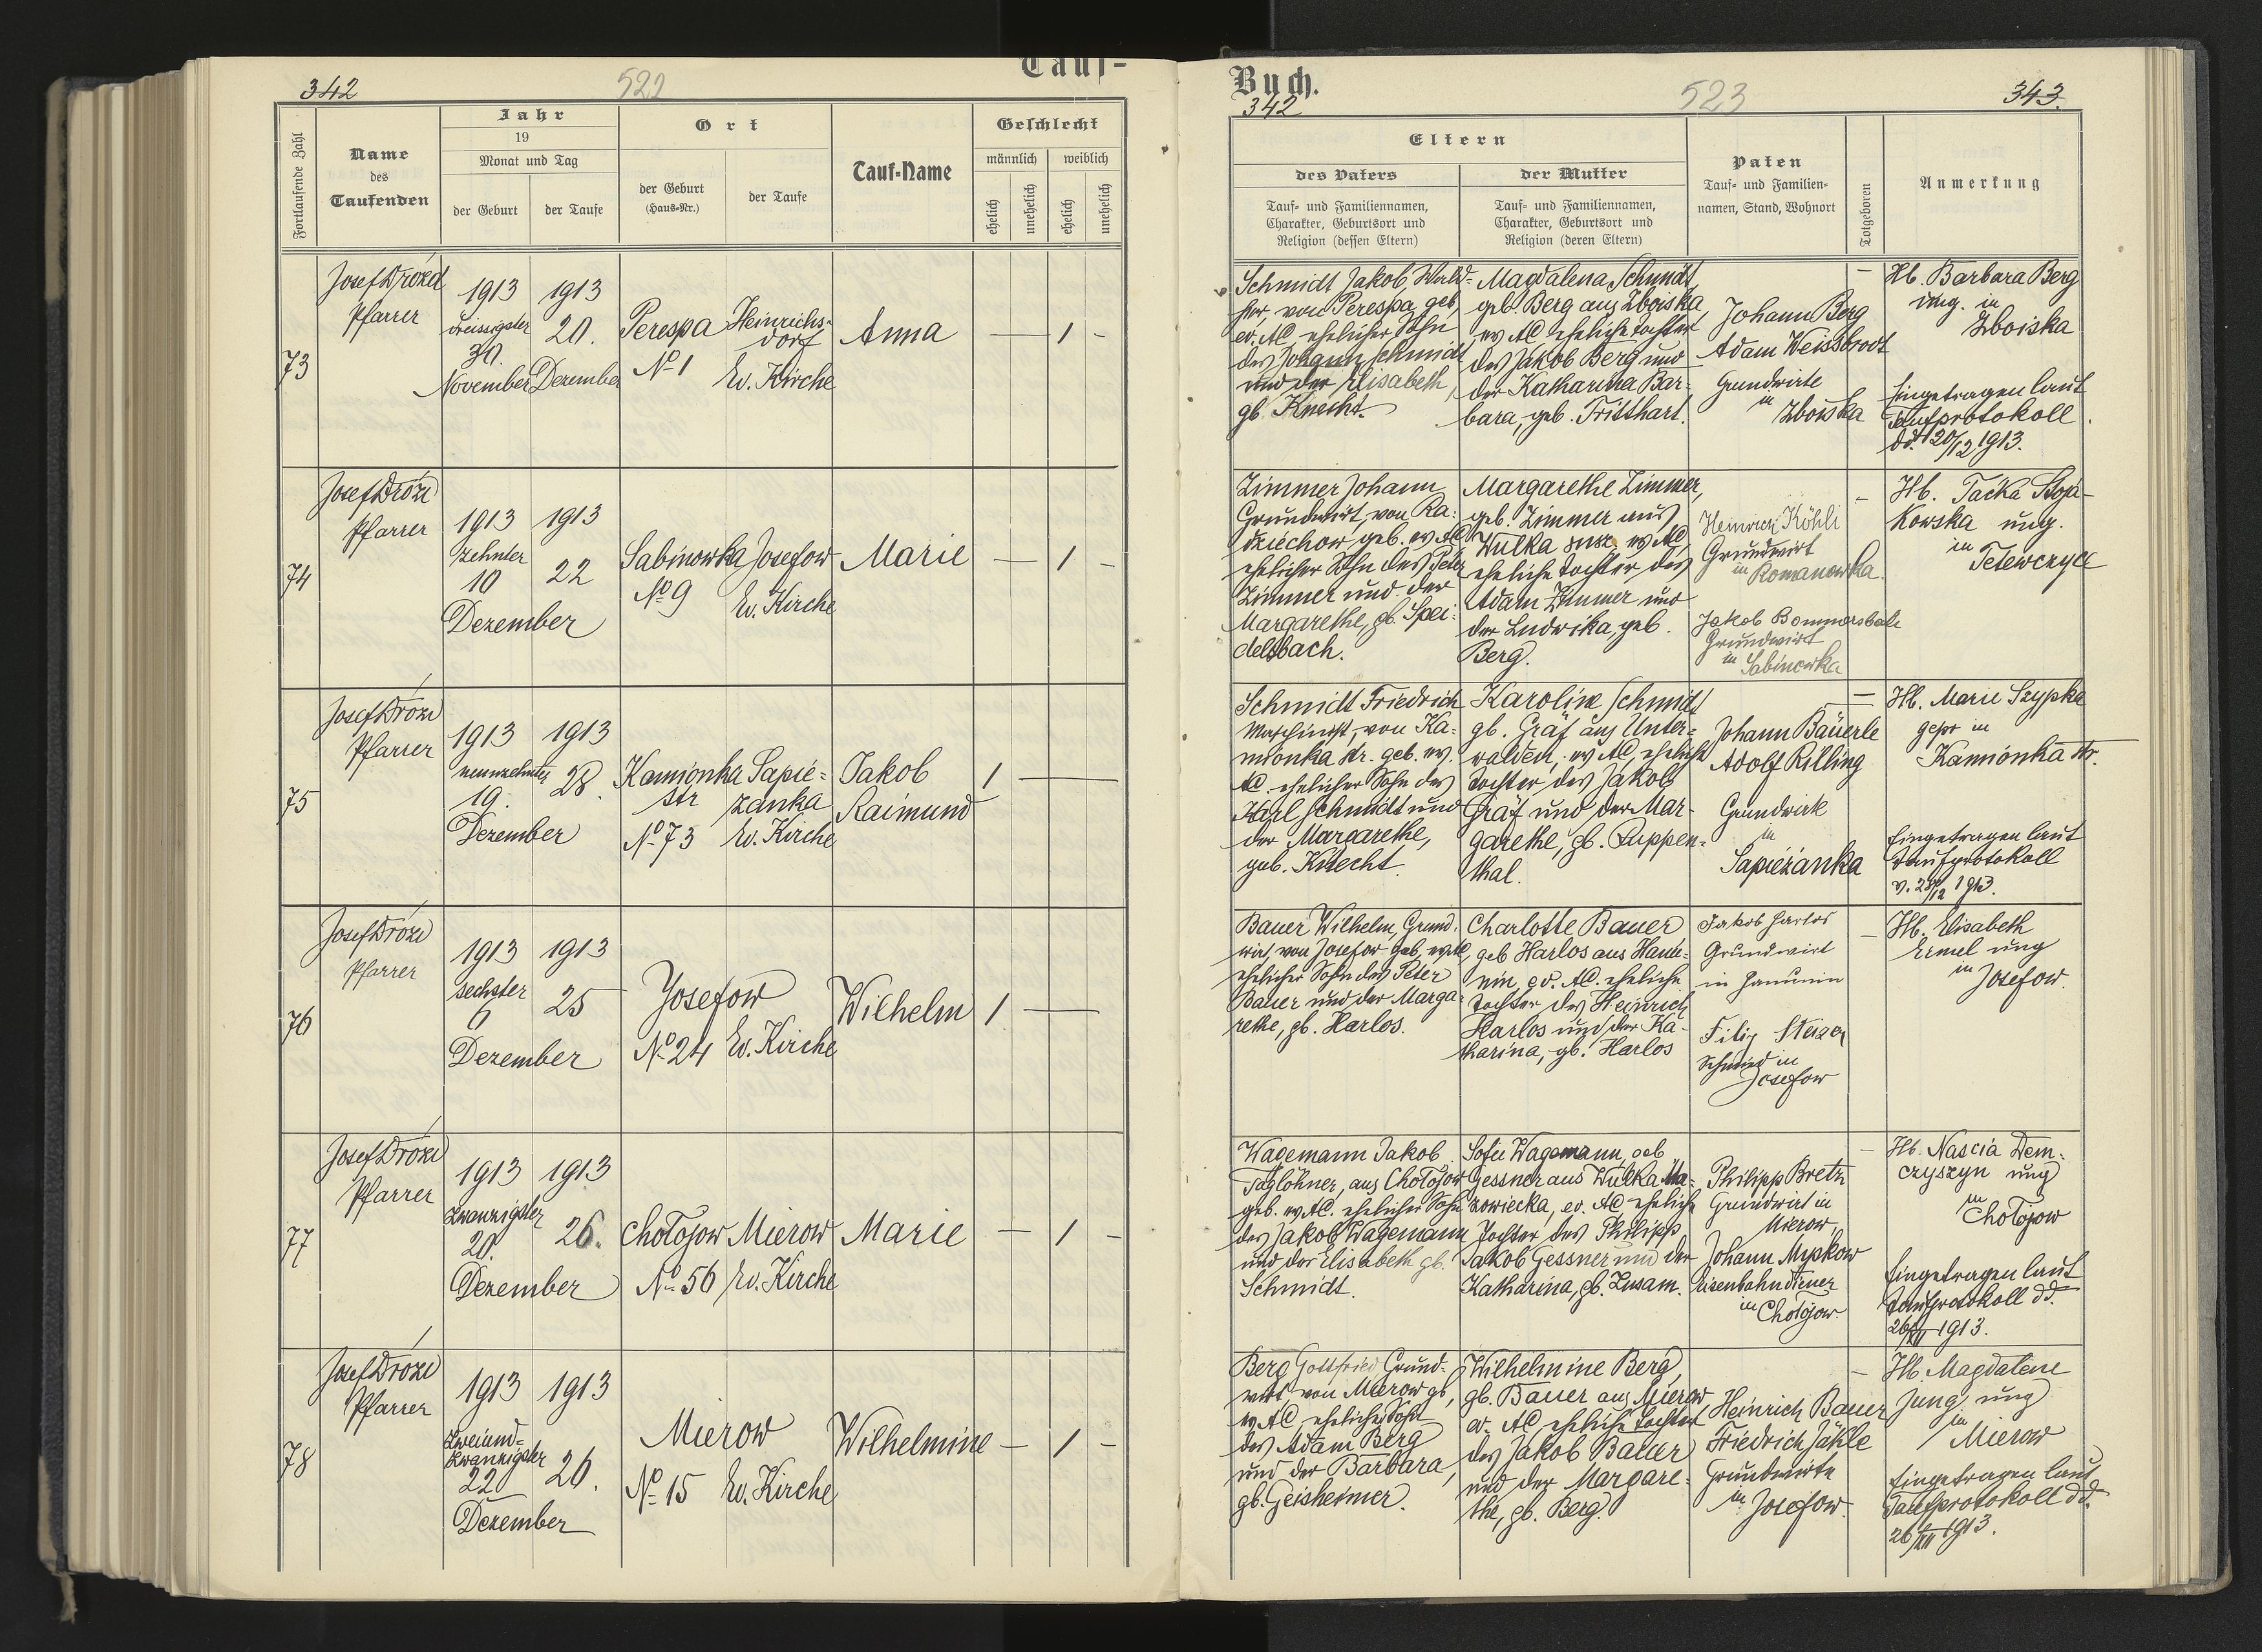 342
522
Tauf-
Fortlaufende Zahl
Name
des
Taufenden
Jahr
19
Monat und Tag
der Geburt
der Taufe
Ort
der Geburt
(Haus-Nr.)
der Taufe
Tauf-Name
Geschlecht
männlich
weiblich
ehelich
unehelich
ehelich
unehelich
73
Josef Drózd
Pfarrer
1913
dreissigster
30.
November
1913
20.
Dezember
Perespa
No 1
Heinrichs-
dorf
Ev. Kirche
Anna
— 1 -
74
Josef Drózd
Pfarrer
1913
zehnter
10
Dezember
1913
22
Sabinowka
No 9
Josefow
Ev. Kirche
Marie
— 1 -
75
Josef Drózd
Pfarrer
1913
neunzehnter
19.
Dezember
1913
28.
Kamionka
str
No 73
Sapie=
zanka
Ev. Kirche
Jakob
Raimund
1 —
76
Josef Drózd
Pfarrer
1913
sechster
6
Dezember
1913
25
Josefow
No 24
Ev. Kirche
Wilhelm
1 —
77
Josef Drózd
Pfarrer
1913
zwanzigster
20.
Dezember
1913
26.
Chołojow
No 56
Mierow
Ev. Kirche
Marie
— 1 -
78
Josef Drózd
Pfarrer
1913
zweiund=
zwanzigster
22
Dezember
1913
26.
Mierow
No 15
Ev. Kirche
Wilhelmine
— 1 -
Buch.
342
523
343.
Eltern
des Vaters
Tauf- und Familiennamen,
Charakter, Geburtsort und
Religion (dessen Eltern)
der Mutter
Tauf- und Familiennamen,
Charakter, Geburtsort und
Religion (deren Eltern)
Paten
Tauf- und Familien-
namen, Stand, Wohnort
Totgeboren
Anmerkung
Schmidt Jakob,
von Perespa, geb.
ev. AC, ehelicher Sohn
des Johann Schmidt
und der Elisabeth,
gb. Knecht.
Magdalena Schmidt,
geb. Berg aus Zboiska,
ev. AC eheliche Tochter
des Jakob Berg und
der Katharina Bar-
bara, geb. Tritthart.
Johann Berg
Adam Weissbrodt
Grundwirte
in
Zboiska
—
Hb. Barbara Berg
ung. in
Zboiska
Eingetragen laut
Taufprotokoll
dd. 20/12 1913.
Zimmer Johann
Grundwirt, von Ra=
dziechow geb. ev. AC
ehelicher Sohn des Peter
Zimmer und der
Margarethe, gb. Spei=
delsbach.
Margarethe Zimmer,
geb. Zimmer aus
Wulka susz. ev AC,
eheliche Tochter des
Adam Zimmer und
der Ludwika, geb.
Berg.
Heinrich Köhli
Grundwirt
in Romanowka.
Jakob
Grundwirt
in Sabinowka
-
Hb. Tacka Stoja-
Kowska ung.
in
Tetewczyce
Schmidt Friedrich
Maschinist, von Ka=
mionka str. geb. ev.
AC. ehelicher Sohn des
Karl Schmidt und
der Margarethe,
geb. Knecht.
Karoline Schmidt
gb. Gräf aus Unter=
walden, ev AC, eheliche
Tochter des Jakob
Gräf und der Mar-
garethe, gb. Luppen=
thal.
Johann Bäuerle
Adolf Rilling
Grundwirte
in
Sapiezanka
—
Hb. Marie Szypka
gepr in
Kamionka str.
Eingetragen laut
Taufprotokoll
v. 28/12 1913.
Bauer Wilhelm, Grund-
wirt, von Josefow geb. ev AC,
ehelicher Sohn des Peter
Bauer und der Marga=
rethe, gb. Harlos.
Charlotte Bauer
geb Harlos aus Hanu=
nin, ev. AC. eheliche
Tochter des Heinrich
Harlos und der Ka-
tharina, gb. Harlos
Jakob Harlos
Grundwirt
in Hanunin
Schmied in
Josefow
—
Hb. Elisabeth
Ermel ung
in
Josefow.
Wagemann Jakob
Taglöhner, aus Chołojow
geb. ev. AC. ehelicher Sohn
des Jakob Wagemann
und der Elisabeth gb.
Schmidt.
Sofie Wagemann, geb
Gessner aus Wulka Ma=
zowiecka, ev. AC, eheliche
Tochter des Philipp
Jakob Gessner und der
Katharina, gb. Lusam.
Philipp Bretz
Grundwirt in
Mierow,
Johann Mypkow
Eisenbahndiener
in Chołojow.
—
Hb. Nascia Dem=
czyszyn ung
in
Chołojow
Eingetragen laut
Taufprotokoll dd.
26/XII 1913.
Berg Gottfried Grund-
wirt, von Mierow gb,
ev. AC, ehelicher Sohn
des Adam Berg
und der Barbara,
gb. Geisheimer.
Wilhelmine Berg,
gb. Bauer aus Mierow
ev. AC eheliche Tochter
des Jakob Bauer
und der Margare=
the, gb. Berg.
Heinrich Bauer
Friedrich Jäkle
Grundwirte
in
Josefow.
—
Hb. Magdalene
Jung ung
in
Mierow
Eingetragen laut
Taufprotokoll dd.
26/XII 1913.